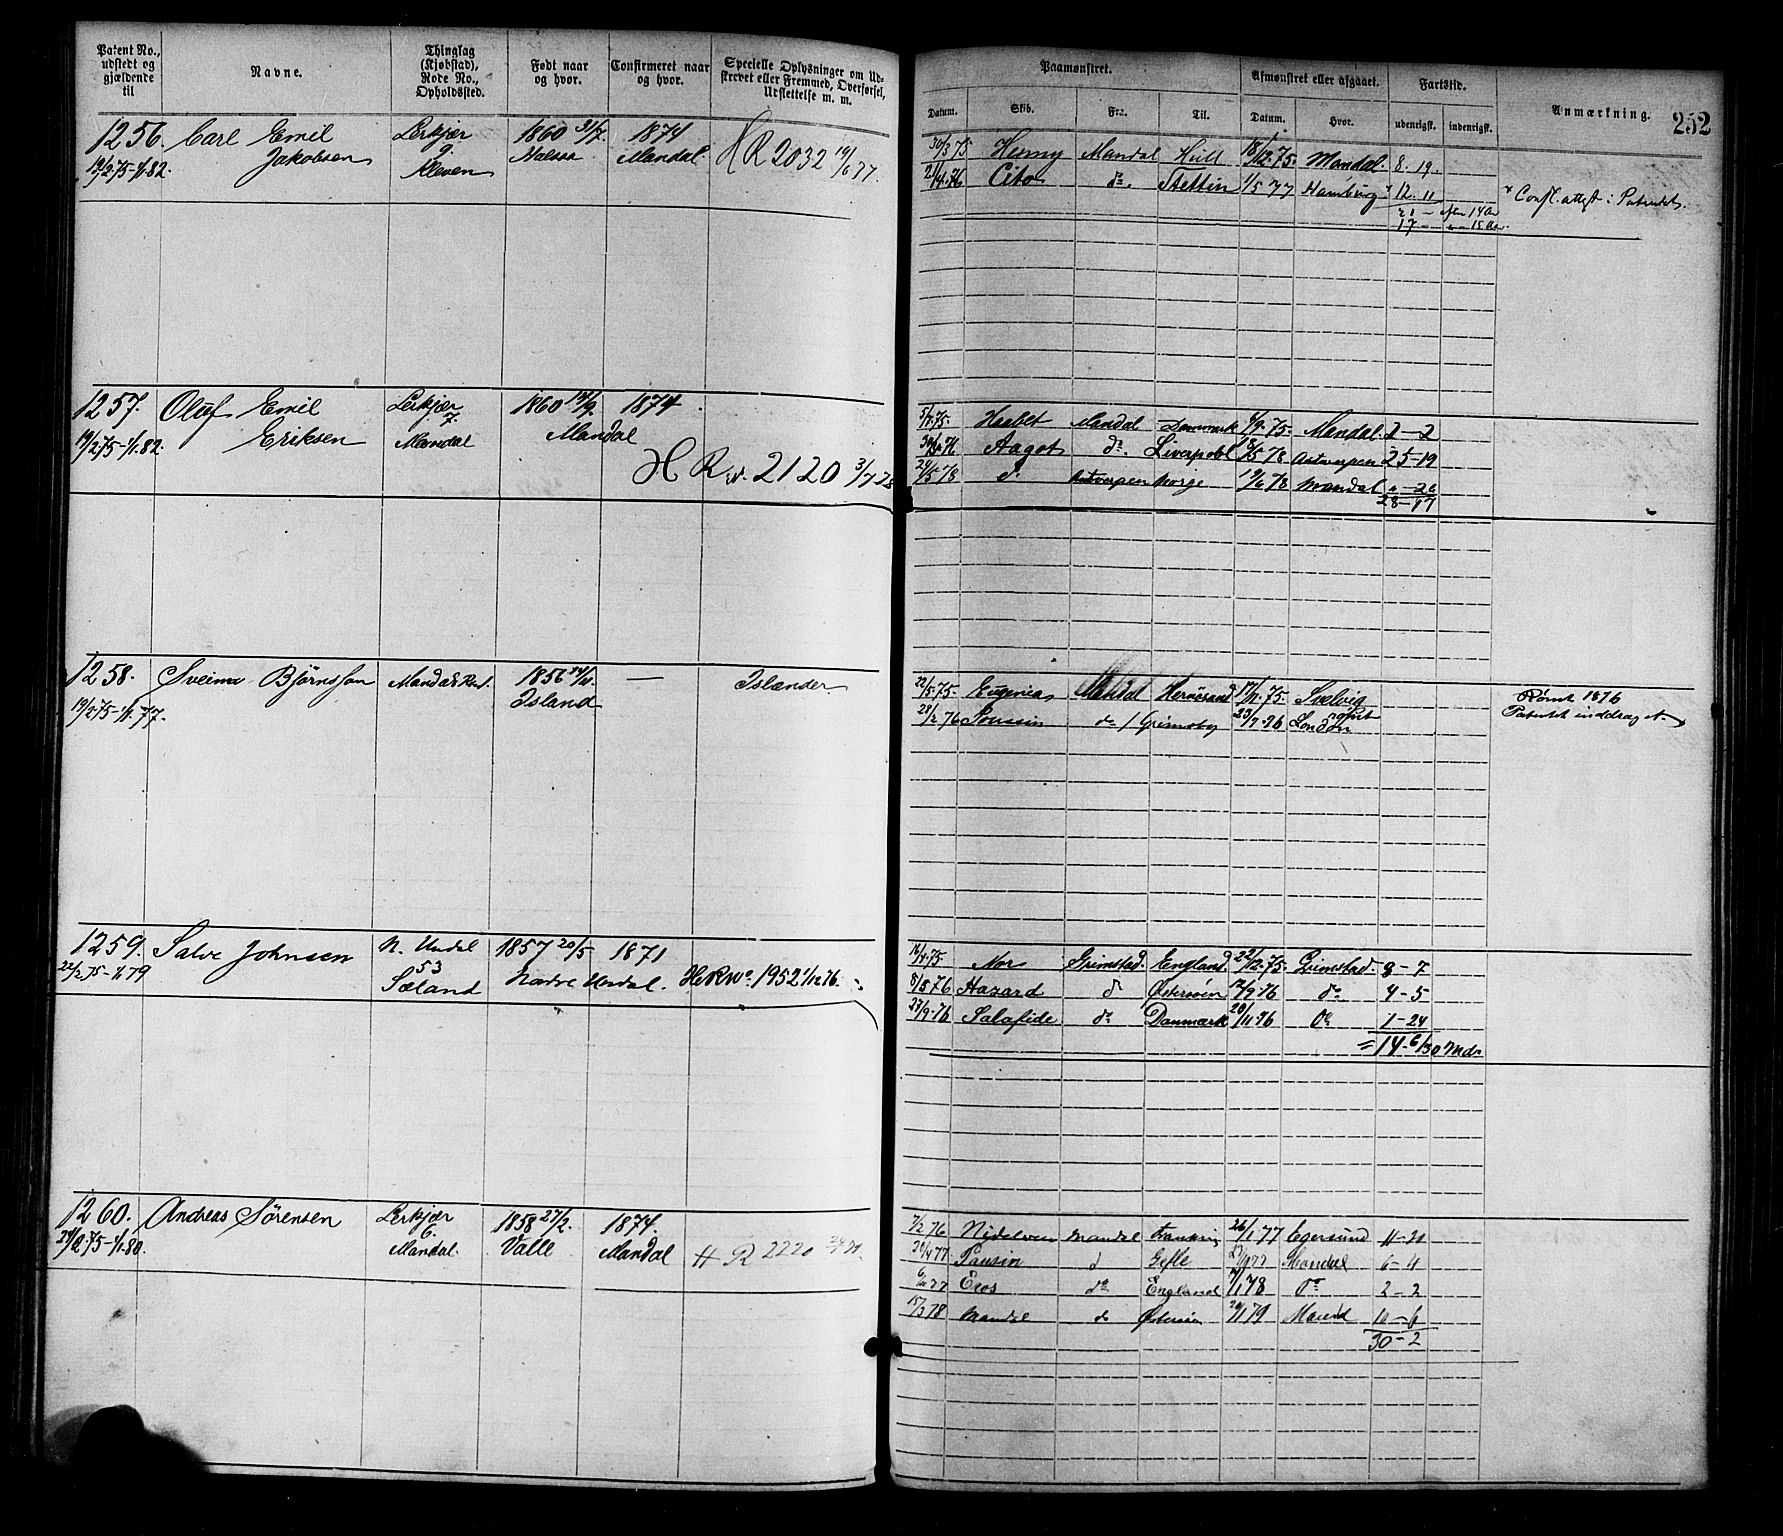 Patent No., udstedt og gjældende til
Navne.
Thinglag (Kjøbstad), Rode No., Opholdssted.
Født naar og hvor.
Confirmeret naar og hvor.
Specielle Oplysninger om Udskrevet eller Fremmed, Overførsel, Urslettelse m. m.
Paamønstret.
Afmønstret eller afgaaet.
Fartstid.
Anmærkning.
252
Datum.
Skib.
Fra.
Til.
Datum.
Hvor.
udenrigst.
indenrigst.
1256. Carl Emil Lerkjær 1860 31/7. 1874 HR 2032 19/6 77.
Jakobsen 9. Halsaa Mandal.
19/2.75-1/1.82. Kleven
30/3 75 Henny Mandal Hull 18/12.75. Mandal. 8. 19.
2/4.76 Cito do. Stettin 1/5 77 Hamburg * 12. 11 * Confl. attest i Patentet.
21 - efter 14 Aar
17 - " - 15 Aar.
1257. Oluf Emil Lerkjær 1860 14/9. 1874.
Eriksen 7. Mandal
19/2 75-1/1.82. Mandal
HR No. 2120 3/7 78
5/7.75. Haabet Mandal Danmark 6/9.75. Mandal. 2-2
Aagot do. Liverpool 18/5 78 Antwerpen 25-19
24/5 78 do Antwerpen Norge 19/6 78 Mandal "-26
28-17
1258. Sveinn Bjørnsson Mandal 1856 Island — Islænder
19/2.75-1/1.77.
22/5.75. Eugenia Mandal Hernøsand 17/11.75. Svelvig Rømt 1876
28/2 76 Poussin do / Grimsby 23/7.76 London rømt Patentet inddraget.
1259. Salve Johnsen N. Undal 1857 20/5 1871
53 Nordre Undal. HR No. 1952 1/12 76.
22/2.75-1/1.79 Sæland
16/4.75 Nor Grimstad. England. 22/12.75. Grimstad. 8-7
8/5 76 Hazard do Østersøen 12/9.76 do 4-5
27/9.76 Salafide do Danmark 20/11.76 do 1-24
= 14-6/30 Mdr
1260. Andreas Sørensen Lerkjær 1858 27/2. 1874.
6. Valle Mandal HR 2220
24/2.75-1/1.80. Mandal.
7/2 76 Nidelven Mandal 26/1 77 Egersund 11-20
20/4 77 Pausin d Gefle Mandal 6-4
6/11 77 Eros do England 7/1 78 do 2-2
15/3 78 Mandal do Østersøen 20/1 79 10-6
30-2